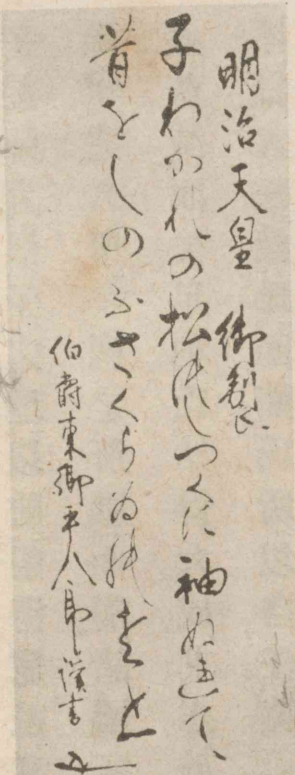 明治天皇 御製
子わかれの松のしつくに袖ぬれて
昔をしのふさくらゐのさと
伯爵東郷平八郎謹書